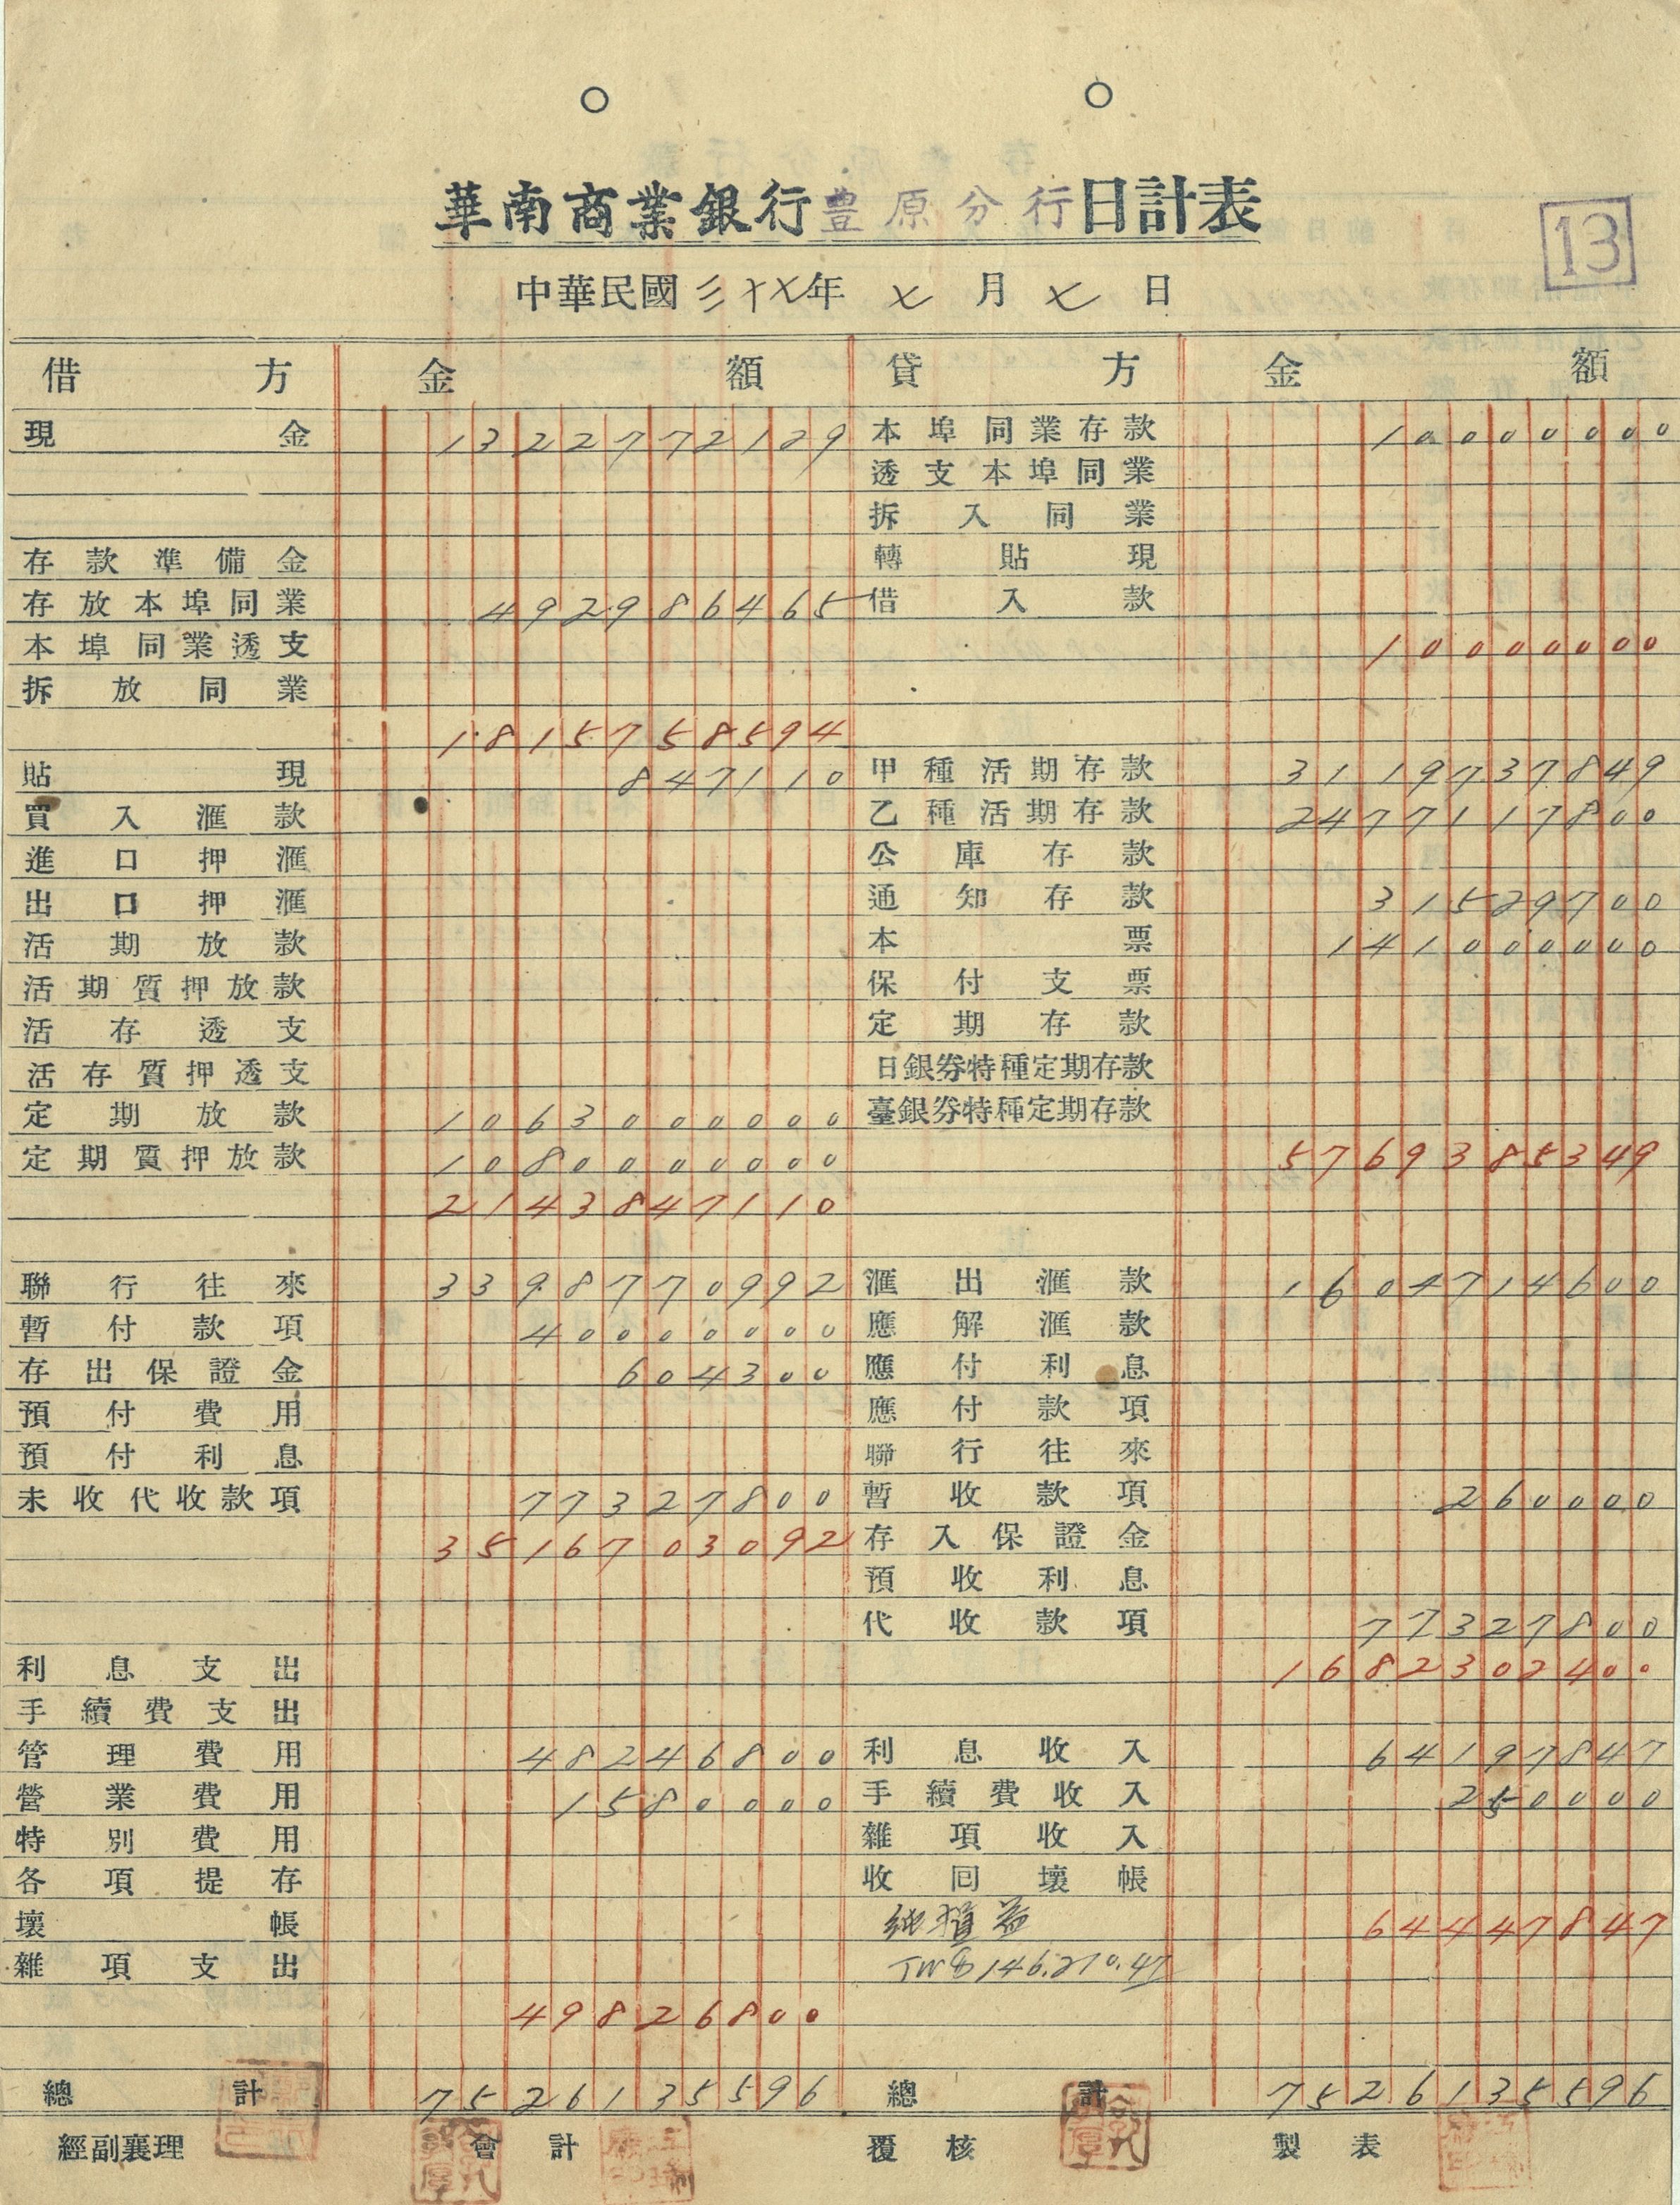 華南商業銀行豊原分行日計表
13
中華民國三十七年七月七日
借方 金額 貸方 金額
現金 1322772129 本埠同業存款 10000000
透支本埠同業
拆入同業
存款準備金 轉貼現
存放本埠同業 492986465 借入款
本埠同業透支 10000000
拆放同業
1815758594
貼現 847110 甲種活期存款 3119737849
買入滙款 乙種活期存款 2477117800
進口押滙 公庫存款
出口押滙 通知存款 31529700
活期放款 本票 141000000
活期質押放款 保付支票
活存透支 定期存款
活存質押透支 日銀券特種定期存款
定期放款 1063000000 臺銀券特種定期存款
定期質押放款 1080000000 5769385349
2143847110
聯行往來 3398770992 滙出滙款 1604714600
暫付款項 40000000 應解滙款
存出保證金 604300 應付利息
預付費用 應付款項
預付利息 聯行往來
未收代收款項 77327800 暫收款項 260000
3516703092 存入保證金
預收利息
代收款項 77327800
利息支出 1682302400
手續費支出
管理費用 48246800 利息收入 64197847
營業費用 1580000 手續費收入 250000
特別費用 雜項收入
各項提存 收回壞帳
壞帳 純損益 64447847
雜項支出 TW$146.210.47
49826800
總計 7526135596 總計 7526135596
經副襄理 會計 覆核 製表